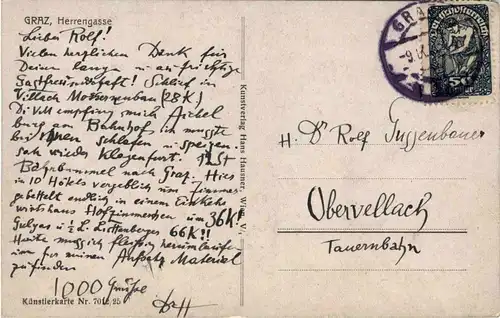 GRAZ, Herrengasse
Lieber Rolf!
Vielen herzlichen Dank für
Deine lange u aufrichtige
Gastfreundschaft! Schlief in
Villach (28K)
Bahnhof, ich musste
schlafen u speisen.
sah wieder Klagenfurt.
Bahnbummel nach Graz. Hier
in 10 Hotels vergeblich um Zimmer
gebettelt endlich in einem Einkehr
wirtshaus Hofzimmerchen um 36K!
Gulyas u ½ L. Luttenberger 66K!!
Heute muss ich fleissig herumlaufen
um für meinen Aufsatz Material
zu finden
1000 Grüsse
Künstlerkarte Nr. 7012 25
Kunstverlag Hans Hausner, Wien, V.
GRAZ
Deutschösterreich
50
H. Dr Rolf Guggenbauer
Obervellach
Tauernbahn